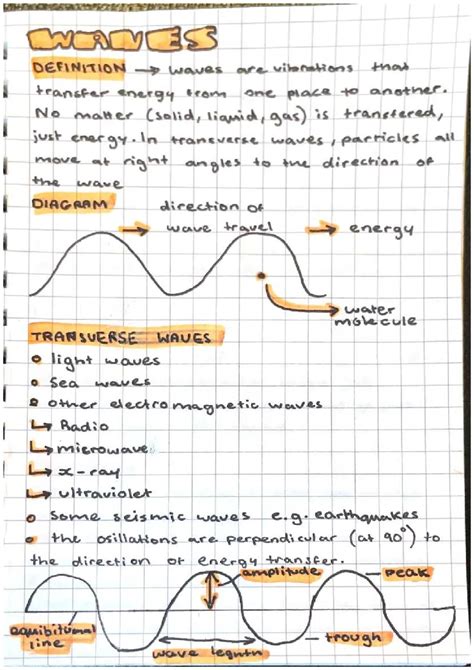 WAVES
DEFINITION → waves are vibrations that
transfer energy from one place to another.
No matter (solid, liquid, gas) is transfered,
just energy. In transverse waves, particles all
move at right angles to the direction of
the wave
DIAGRAM direction of
→ wave travel → energy
water
molecule
TRANSVERSE WAVES
• light waves
• sea waves
• other electromagnetic waves
↳ Radio
↳ microwave
↳ x-ray
↳ ultraviolet
• some seismic waves e.g. earthquakes
• the osillations are perpendicular (at 90°) to
the direction of energy transfer.
amplitude
peak
equibitumal
line
trough
wave legnth